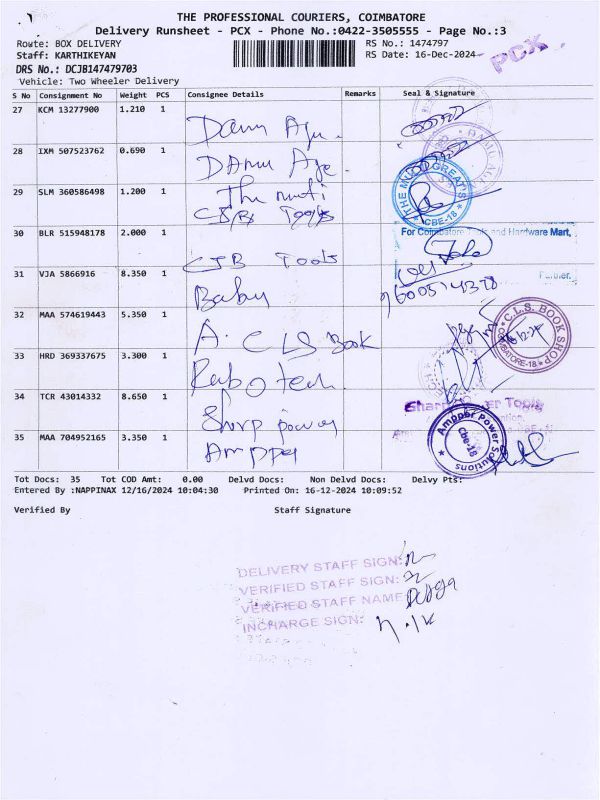 THE PROFESSIONAL COURIERS, COIMBATORE
Delivery Runsheet - PCX - Phone No.:0422-3505555 - Page No.:3
Route: BOX DELIVERY RS No.: 1474797
Staff: KARTHIKEYAN RS Date: 16-Dec-2024
PCX
DRS No.: DCJB147479703
Vehicle: Two Wheeler Delivery
S No Consignment No Weight PCS Consignee Details Remarks Seal & Signature
27 KCM 13277900 1.210 1
Damu
28 IXM 507523762 0.690 1
DAmu
29 SLM 360586498 1.200 1
The multi
THE MULTI GREAT'S
CBE-18
Tools
30 BLR 515948178 2.000 1
For Coimbatore Tools and Hardware Mart,
CJB Tools
Partner.
31 VJA 5866916 8.350 1
Baby
32 MAA 574619443 5.350 1
A. CLS Book
C.L.S. BOOK SHOP
COIMBATORE-18
33 HRD 369337675 3.300 1
Robotech
34 TCR 43014332 8.650 1
Sharp power
Sharp Power Tools
35 MAA 704952165 3.350 1
Ampper
Ampper Power Solutions
Cbe-18
Tot Docs: 35 Tot COD Amt: 0.00 Delvd Docs: Non Delvd Docs: Delvy Pts:
Entered By :NAPPINAX 12/16/2024 10:04:30 Printed On: 16-12-2024 10:09:52
Verified By Staff Signature
DELIVERY STAFF SIGN:
VERIFIED STAFF SIGN:
VERIFIED STAFF NAME:
INCHARGE SIGN: